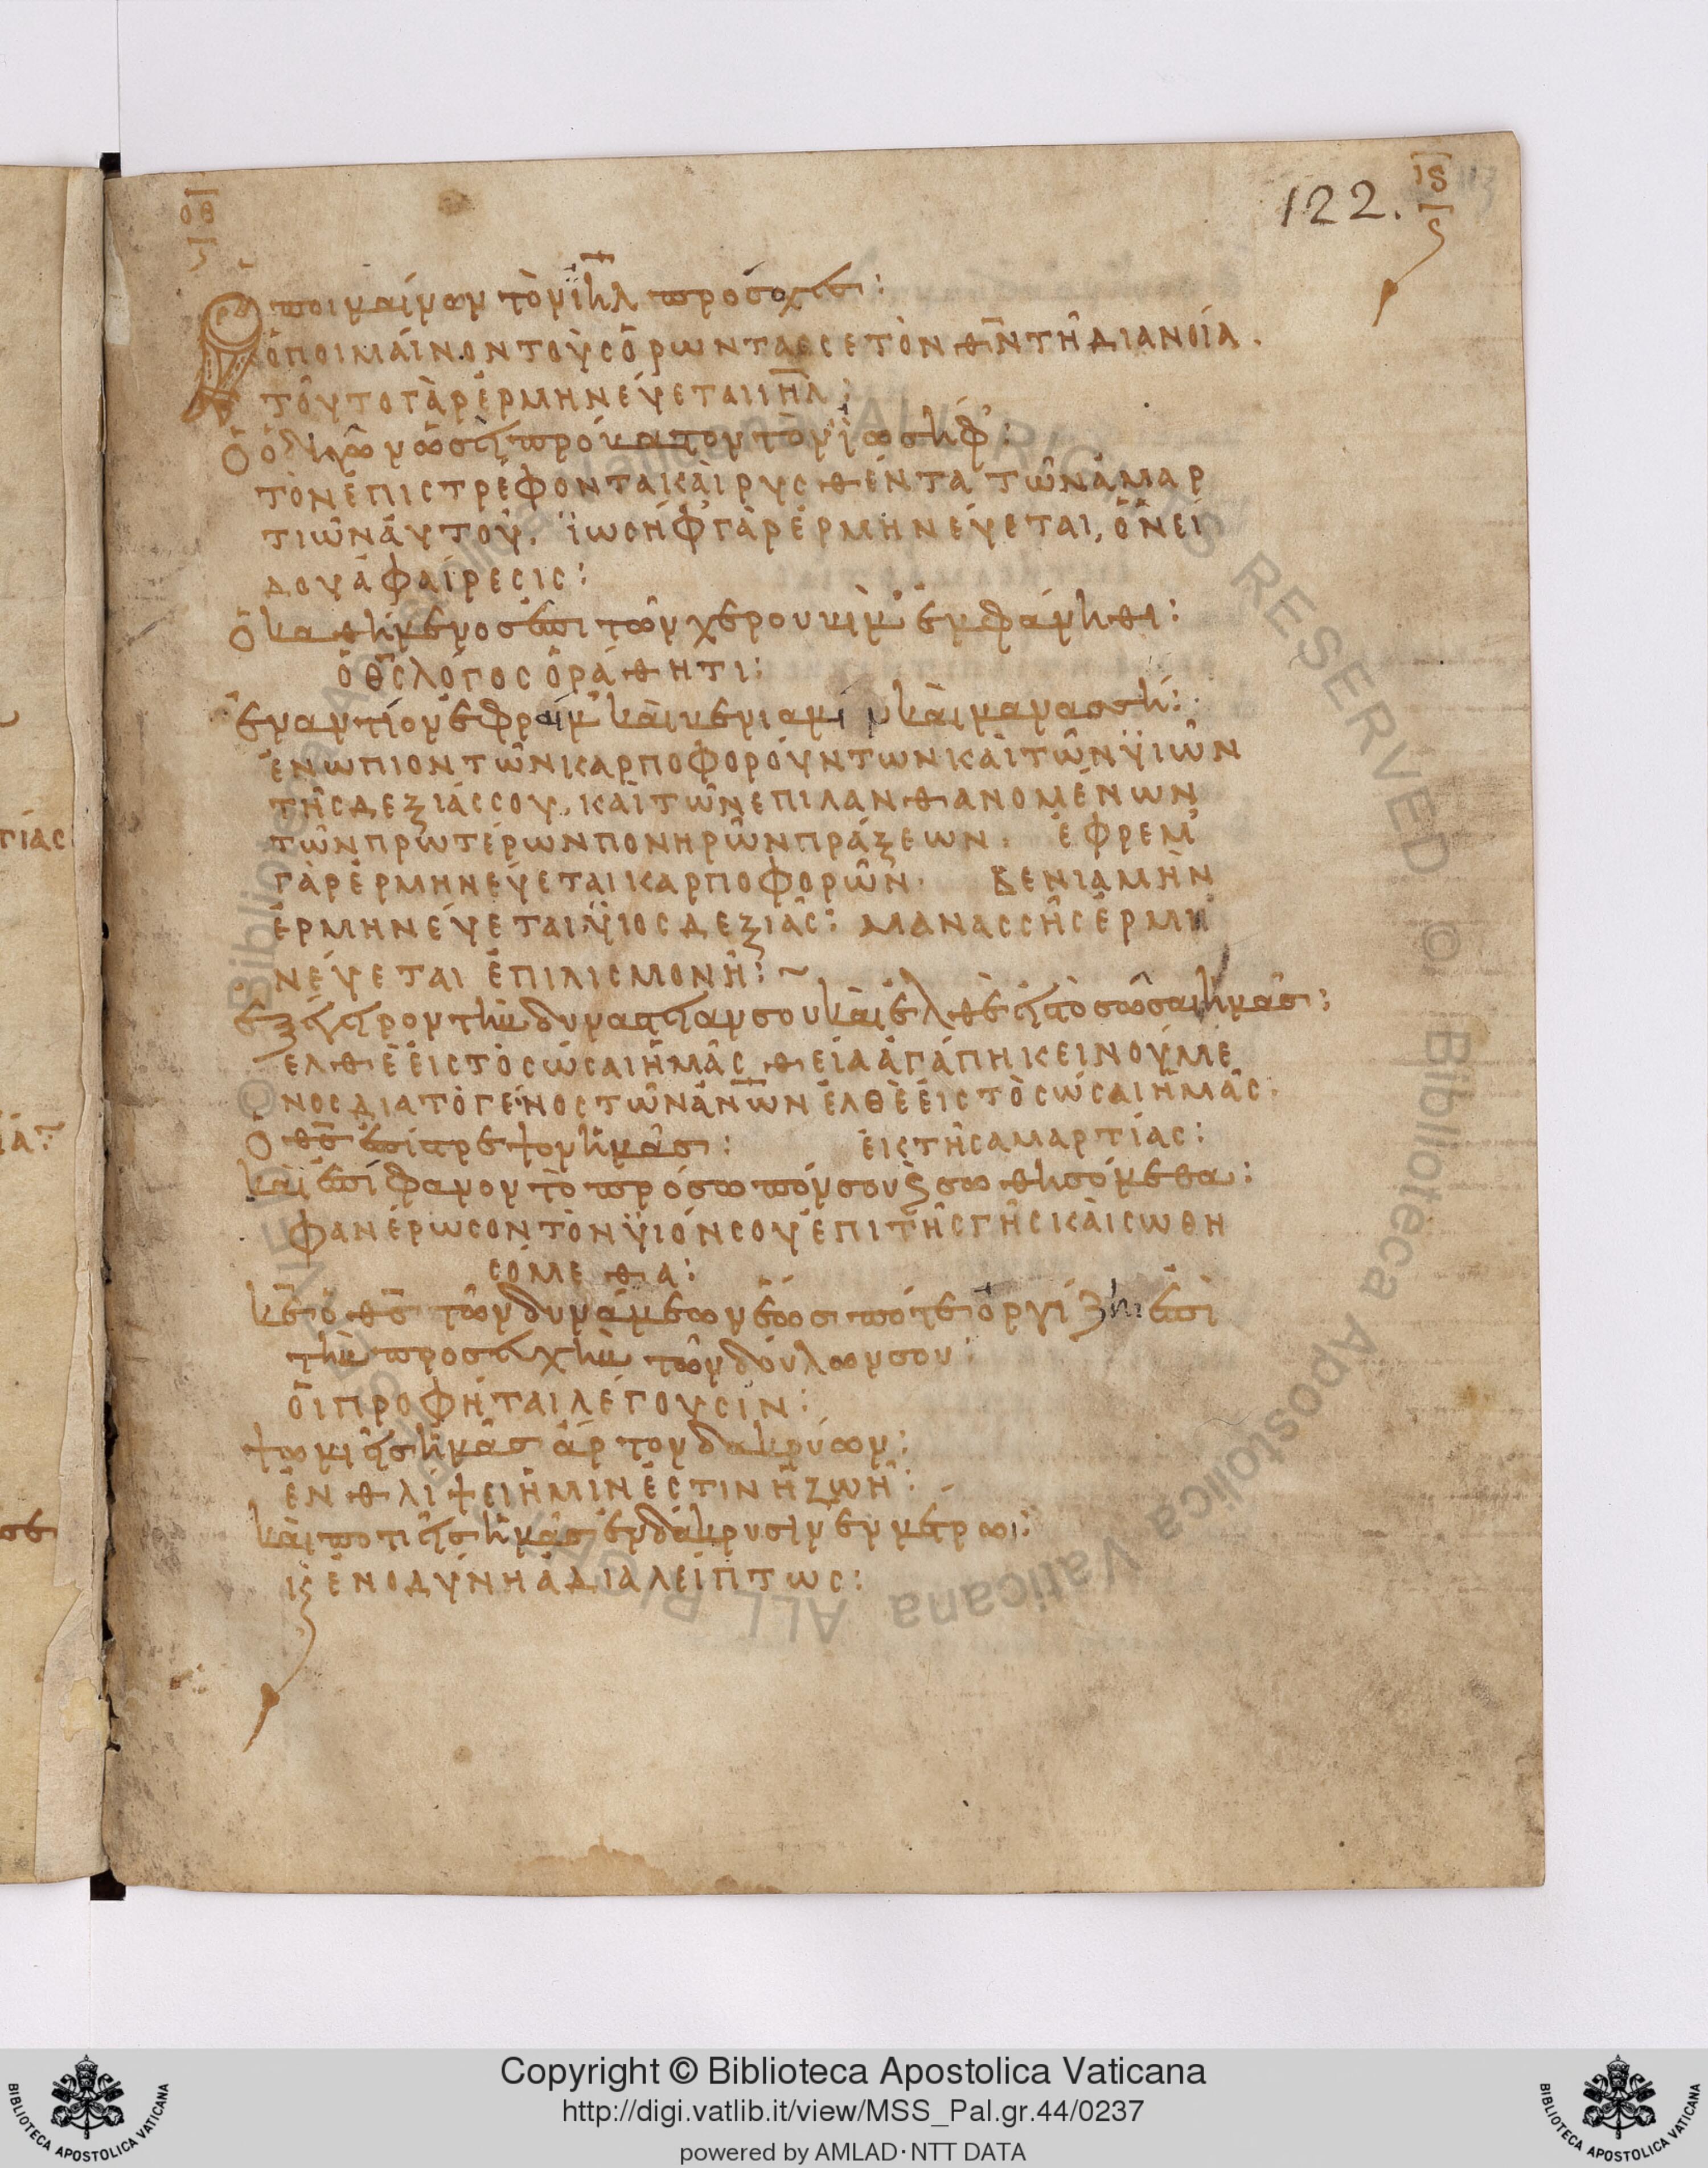 οθ
ις
122.
Ὁ ποιμαίνων τὸν ἰηλ πρόσχες:
ὁ ποιμαίνον τοὺς ὁρωντας σε τὸν θν τῇ διανοία.
τοῦτο γὰρ ἑρμηνεύεται ιηλ:
Ὁ ὁδηγῶν ὡσεὶ πρόβατον τὸν ἰωσήφ:
τὸν ἐπιστρέφοντα καὶ ρυσθέντα τῶν ἁμαρ
τιῶν ἀυτοῦ. ἰωσὴφ γὰρ ἑρμηνεύεται, ὀνεί
δου ἀφαίρεσις:
Ὁ καθήμενος ἐπι τῶν χερουβὶμ ἐμφάνηθι:
ὁ θς λόγος ὁράθητι:
ἐναντίον ἐφραὶμ καὶ βενιαμὶν καὶ μανασσή:
ἐνωπιον τῶν καρποφορούντων καὶ τῶν ὑιῶν
τῆς δεξιάς σου, καὶ τῶν επιλανθανομένων
τῶν πρωτέρων πονηρῶν πράξεων. ἐφρεμ
γὰρ ἑρμηνεύεται καρποφορῶν. Βενιαμὴν
ἑρμηνεύεται ὑιος δεξιᾶς: μανασσῆς ἑρμη
νεύεται ἐπιλισμονή: ~
ἐξέγειρον τὴν δυναστείαν σου καὶ ἐλθὲ εἰς τὸ σῶσαι ἡμᾶς:
ελθὲ εἰς τὸ σώσαι ἡμᾶς θεία ἀγάπη κεινούμε
νος δια τὸ γένος τῶν ἀνων ἐλθὲ εἰς τὸ σώσαι ἡμᾶς.
Ὁ θς ἐπίστρεψον ἡμᾶς: ἐις τῆς αμαρτίας:
καὶ ἐπίφανον τὸ πρόσωπόν σου ϗ σωθησόμεθα:
φανέρωσον τὸν ὑιόν σου ἐπι τῆς γῆς καὶ σωθη
σόμεθα:
κε ὁ θς τῶν δυνάμεων ἕως πότε ὀργίζῃ ἐπὶ
τὴν προσευχὴν τῶν δούλων σου:
ὁι προφῆται λέγουσιν:
ψωμιεῖς ἡμᾶς ἄρτον δακρύων:
ἐν θλίψει ἡμιν ἐστιν ἡ ζωή:
καὶ ποτιεῖς ἡμᾶς ἐν δάκρυσιν εν μέτρωι:
κς ἐν οδύνη ἀδιαλείπτως:
Copyright © Biblioteca Apostolica Vaticana
http://digi.vatlib.it/view/MSS_Pal.gr.44/0237
powered by AMLAD·NTT DATA